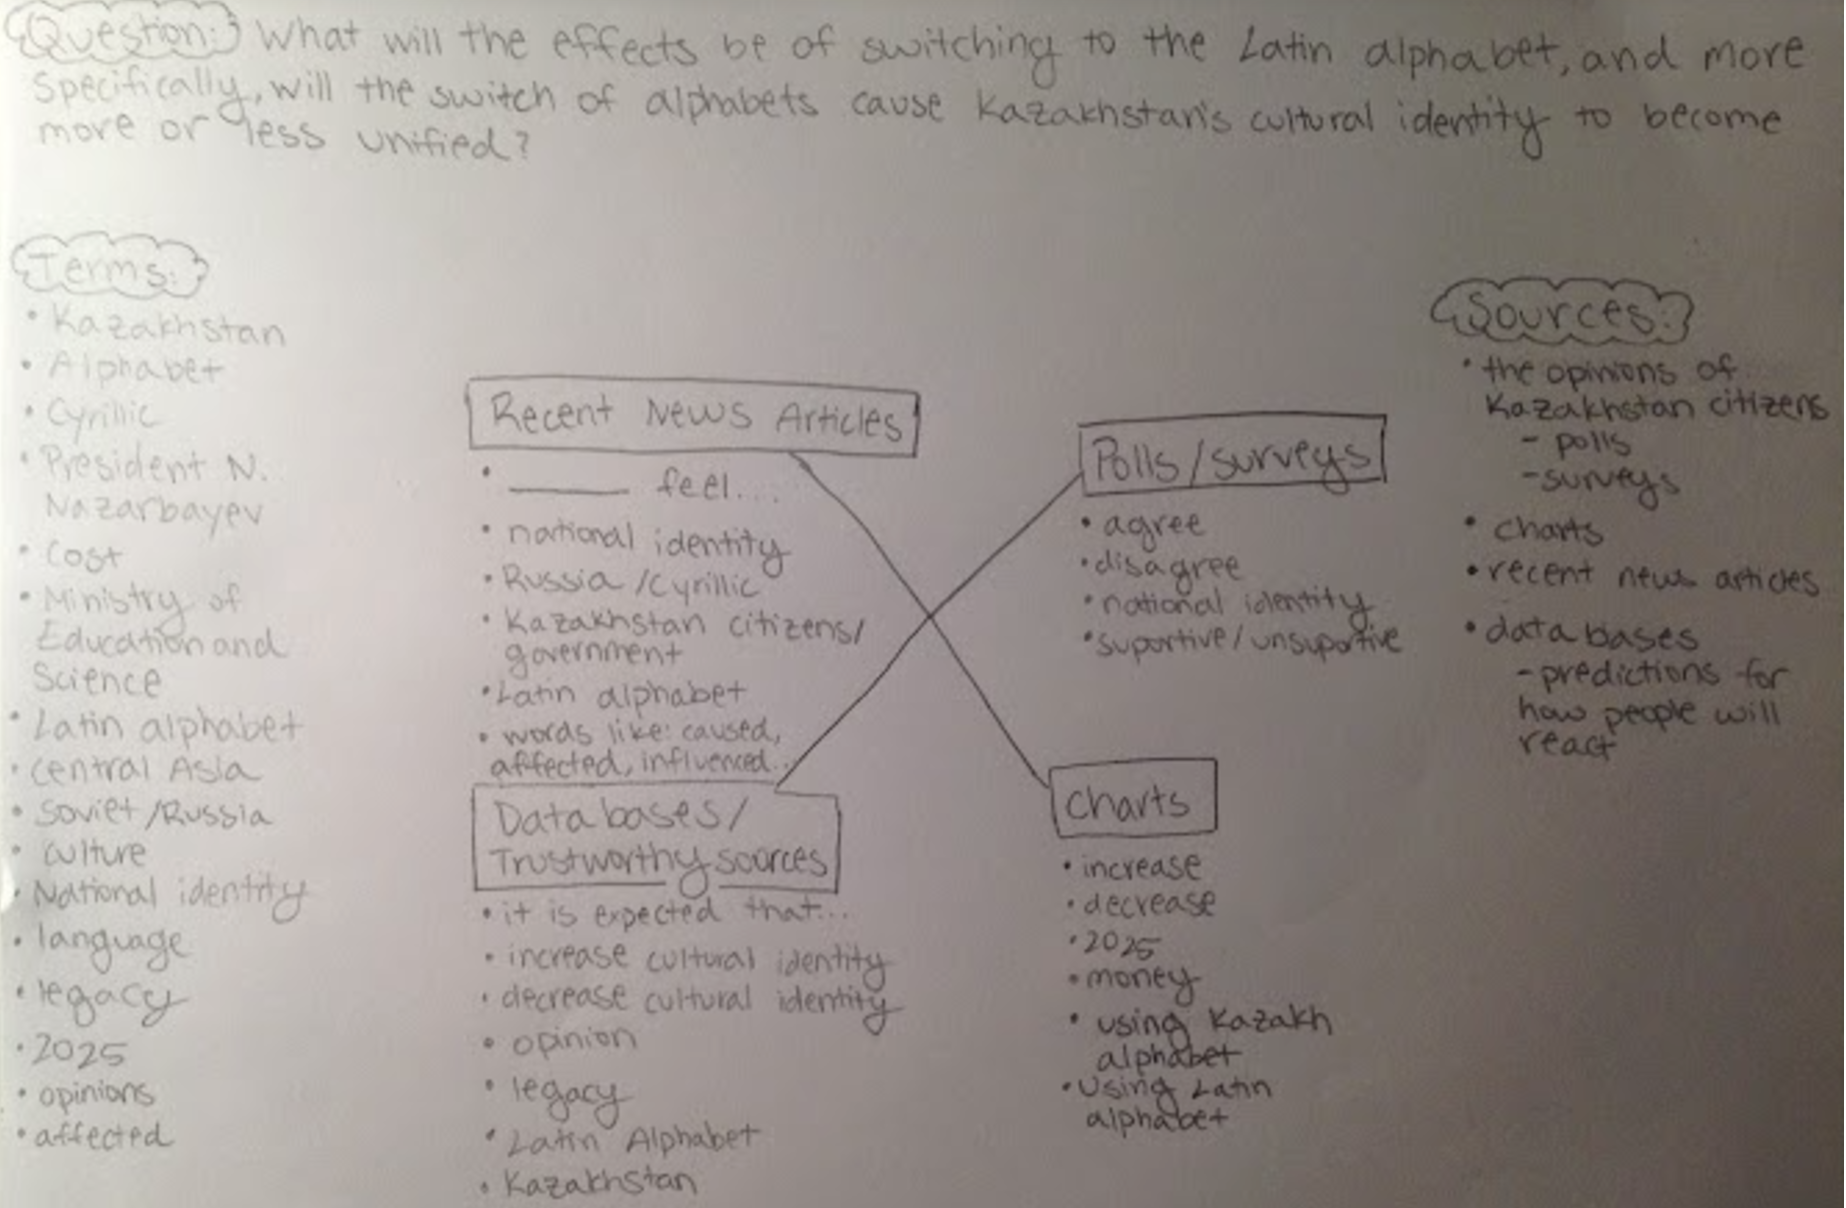 Question: What will the effects be of switching to the Latin alphabet, and more
specifically, will the switch of alphabets cause Kazakhstan's cultural identity to become
more or less unified?
Terms:
• Kazakhstan
• Alphabet
• Cyrillic
• President N.
Nazarbayev
• Cost
• Ministry of
Education and
Science
• Latin alphabet
• Central Asia
• Soviet/Russia
• culture
• National identity
• language
• legacy
• 2025
• opinions
• affected
Recent News Articles
• ______ feel....
• national identity
• Russia/Cyrillic
• Kazakhstan citizens/
government
• Latin alphabet
• words like: caused,
affected, influenced...
Databases/
Trustworthy sources
• it is expected that...
• increase cultural identity
• decrease cultural identity
• opinion
• legacy
• Latin Alphabet
• Kazakhstan
Polls/surveys
• agree
• disagree
• national identity
• suportive/unsuportive
charts
• increase
• decrease
• 2025
• money
• using Kazakh
alphabet
• Using Latin
alphabet
Sources:
• the opinions of
Kazakhstan citizens
- polls
- surveys
• charts
• recent news articles
• databases
- predictions for
how people will
react